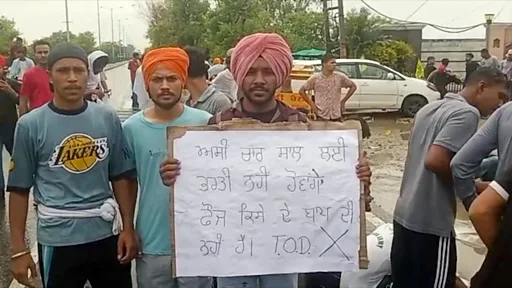 LAKERS
ਅਸੀ ਚਾਰ ਸਾਲ ਲਈ
ਭਰਤੀ ਨਹੀ ਹੋਵਾਂਗੇ
ਫੌਜ ਕਿਸੇ ਦੇ ਬਾਪ ਦੀ
ਨਹੀ ਹੈ। T.O.D. X